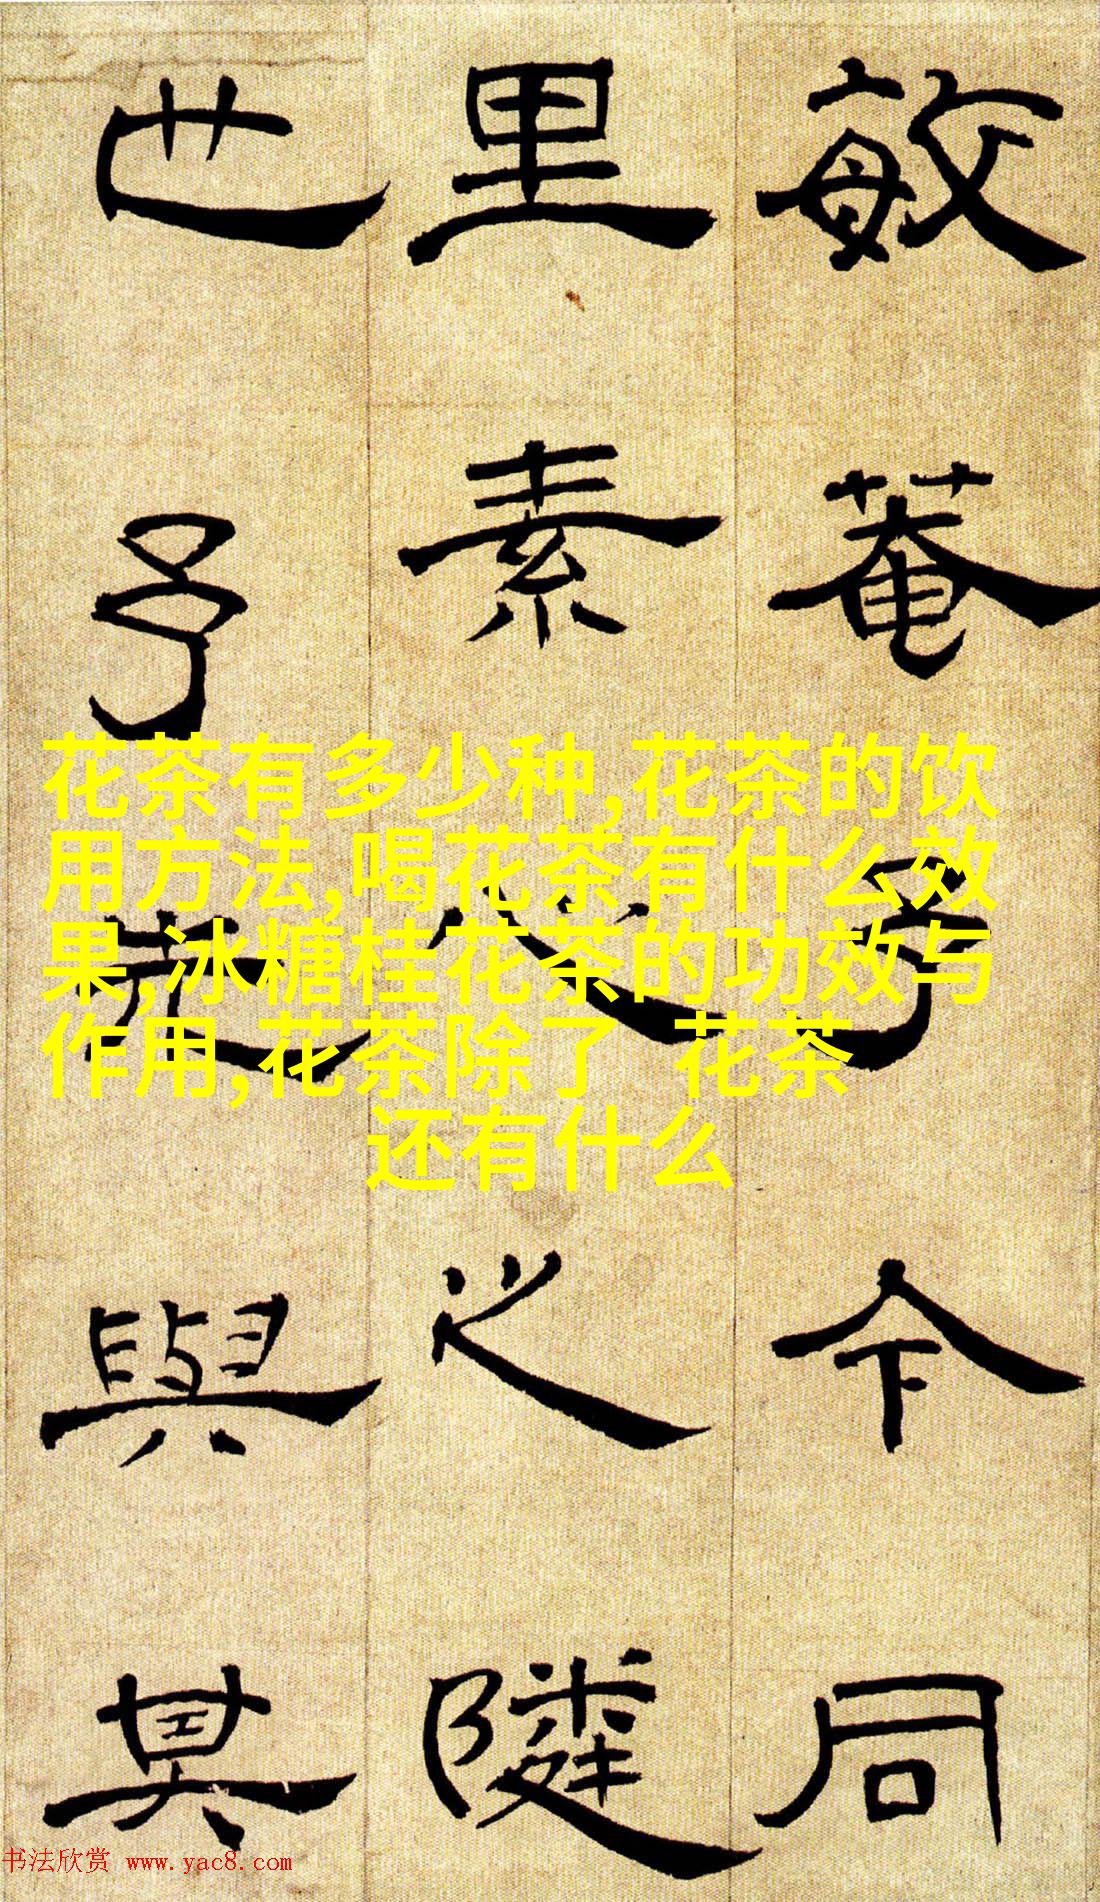 敏菴今同
里素心之隣
也予先與其
花茶有多少种,花茶的饮
用方法,喝花茶有什么效
果,冰糖桂花茶的功效与
作用,花茶除了  花茶
还有什么
书法欣赏 www.yac8.com